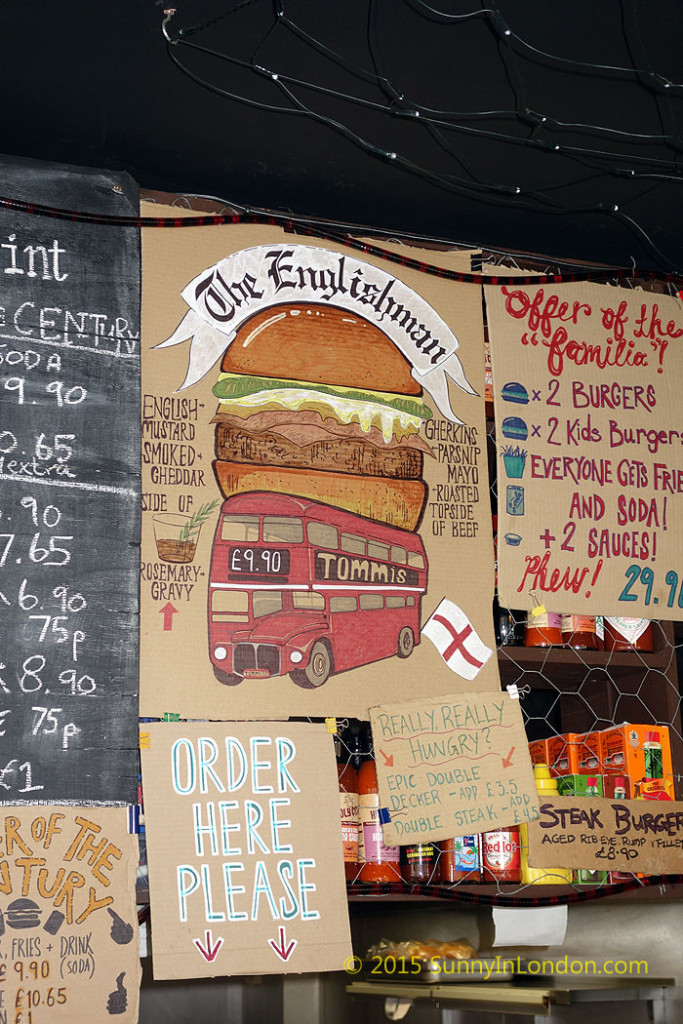 int
CENTURY
SODA
9.90
0.65
extra
.90
7.65
6.90
75p
8.90
75p
£1
The Englishman
ENGLISH-
MUSTARD
SMOKED-
CHEDDAR
SIDE OF
ROSEMARY-
GRAVY
GHERKINS
-PARSNIP
MAYO
-ROASTED
TOPSIDE
OF BEEF
£9.90
TOMMIS
Offer of the
"familia"!
x 2 BURGERS
x 2 Kids Burgers
EVERYONE GETS FRIE
AND SODA!
+ 2 SAUCES!
Phew!
29.90
ORDER
HERE
PLEASE
REALLY, REALLY
HUNGRY?
EPIC DOUBLE
DECKER - ADD £3.5
DOUBLE STEAK - ADD
£4.5
STEAK BURGER
AGED RIB EYE, RUMP & FILLET
£8.90
ER OF THE
NTURY
, FRIES + DRINK
£ 9.90 (SODA)
£10.65
£1
Red Hot
© 2015 SunnyInLondon.com